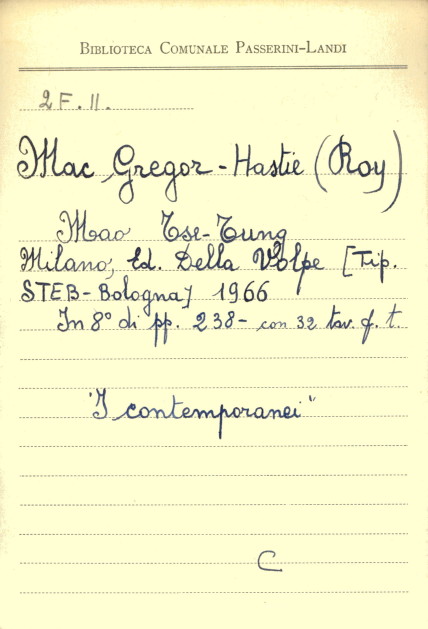 BIBLIOTECA COMUNALE PASSERINI-LANDI
2 F. 11.
Mac Gregor - Hastie (Roy)
Mao Tse-Tung
Milano, Ed. Della Volpe [Tip.
STEB - Bologna] 1966
In 8° di pp. 238 - con 32 tav. f. t.
"I contemporanei"
C